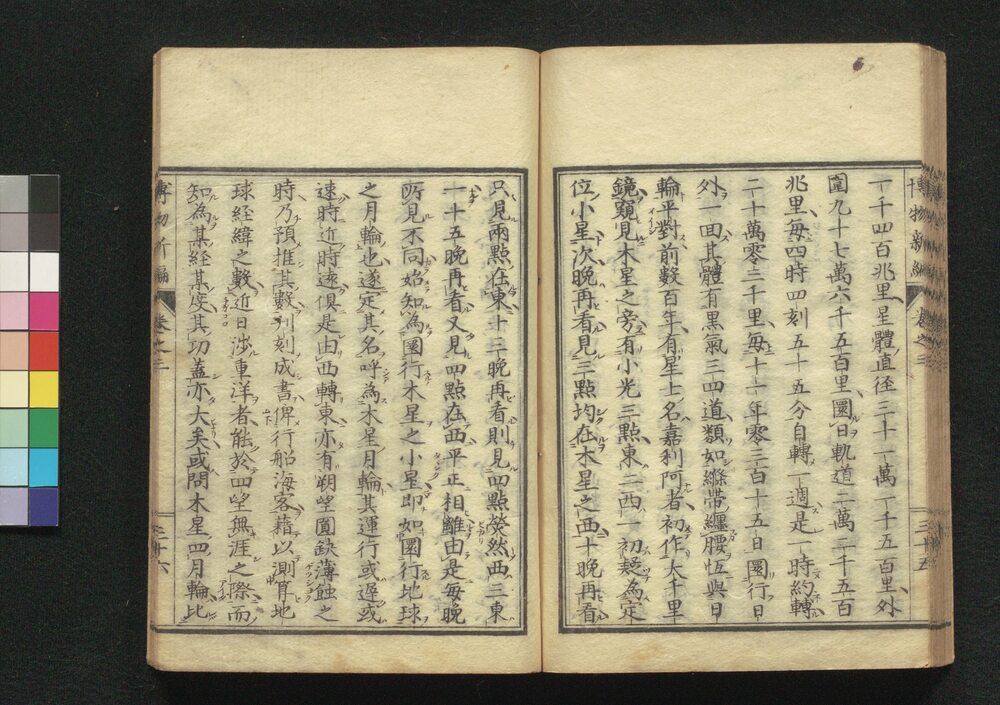 一千四百兆里星體直徑三十一萬一千五百里外
圍九十七萬六千五百里圜日軌道二萬二千五百
兆里每四時四刻五十五分自轉一週是一時約轉
二十萬零三千里每十一年零三百十五日圜行日
外一回其體有黑氣三四道類如縧帶纏腰恆與日
輪平對前數百年有星士名嘉利阿者初作大千里
鏡窺見木星之旁有小光三點東二西一初疑為定
位小星次晚再看見三點均在木星之西十晚再看
只見兩點在東十三晚再看則見四點熒然西三東
一十五晚再看又見四點在西平正相離由是每晚
所見不同始知為圜行木星之小星即如圜行地球
之月輪也遂定其名呼為木星月輪其運行或遲或
速時近時遠俱是由西轉東亦有朔望圓缺薄蝕之
時乃預推其數刊刻成書俾行船海客藉以測算地
球經緯之數近日涉重洋者能於四望無涯之際而
知為某經某度其功蓋亦大矣或問木星四月輪比
博物新編
卷之三
三十六
博物新編
卷之三
三十五